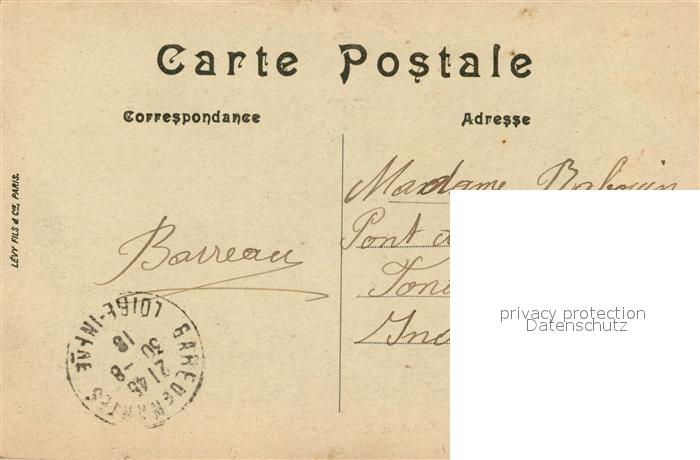 Carte Postale
Correspondance
Adresse
LÉVY FILS & Cie, PARIS.
Madame
Pont
Barreau
privacy protection
Datenschutz
GARE DE NANTES
LOIRE-INFRE
21 45
30 - 8
18